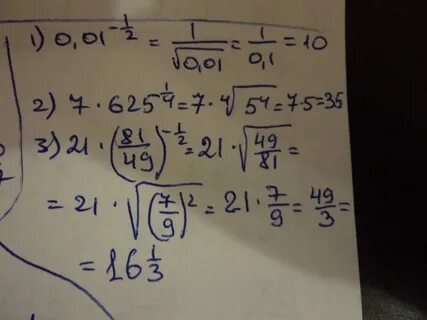 1) 0,01^{-\frac{1}{2}} = \frac{1}{\sqrt{0,01}} = \frac{1}{0,1} = 10
2) 7 · 625^{\frac{1}{4}} = 7 · \sqrt[4]{5^4} = 7·5 = 35
3) 21 · (\frac{81}{49})^{-\frac{1}{2}} = 21 · \sqrt{\frac{49}{81}} =
= 21 · \sqrt{(\frac{7}{9})^2} = 21 · \frac{7}{9} = \frac{49}{3} =
= 16 \frac{1}{3}